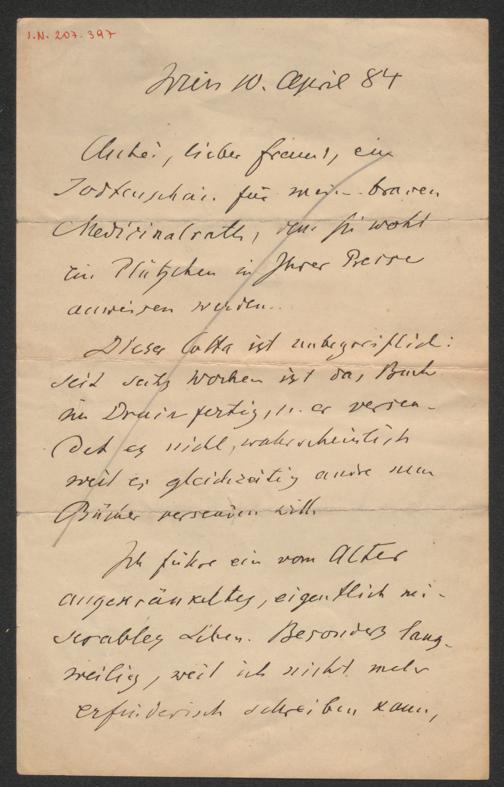 I.N. 207.397
Wien 10. April 84
lieber Freund, ein
Todtenschein für meinen braven
Medicinalrath, dem Sie wohl
ein Plätzchen in Ihrer Presse
anweisen werden.
Dieser Cotta ist unbegreiflich:
seit sechs Wochen ist das Buch
im Druck fertig, u. er versen-
det es nicht, wahrscheinlich
weil er gleichzeitig andre neue
Bücher versenden will.
Ich führe ein vom Alter
angekränkeltes, eigentlich mi-
serables Leben. Besonders lang-
weilig, weil ich nicht mehr
erfinderisch schreiben kann,